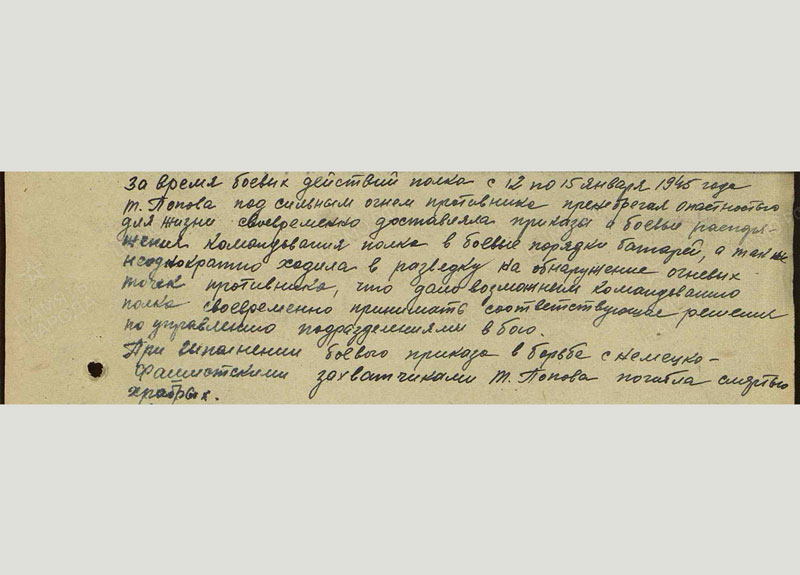 За время боевых действий полка с 12 по 15 января 1945 года
т. Попова под сильным огнем противника пренебрегая опастностью
для жизни своевременно доставляла приказы и боевые распоря-
жения командования полка в боевые порядки батарей, а так же
неоднократно ходила в разведку на обнаружение огневых
точек противника, что дало возможным командованию
полка своевременно принимать соответствующие решения
по управлению подразделениями в бою.
При выполнении боевого приказа в борьбе с немецко-
фашистскими захватчиками т. Попова погибла смертью
храбрых.